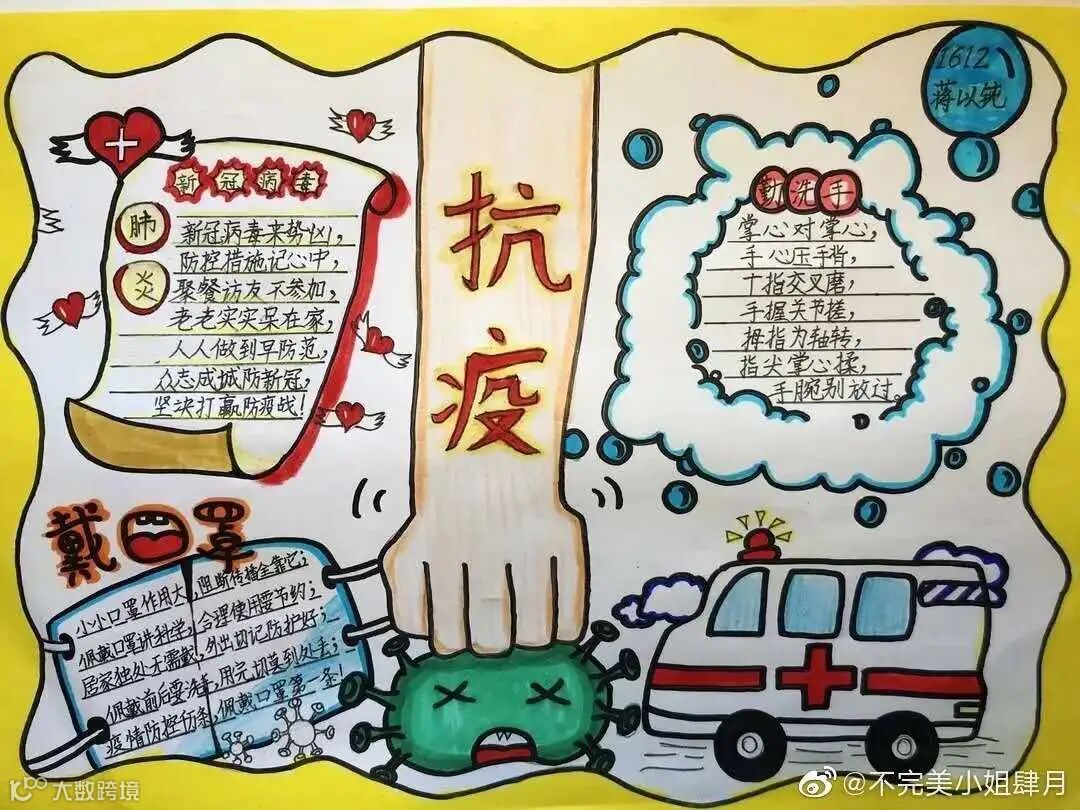 1612
蒋以钝
抗疫
新冠病毒
肺炎
新冠病毒来势凶,
防控措施记心中,
聚餐访友不参加,
老老实实呆在家,
人人做到早防范,
众志成城防新冠,
坚决打赢防疫战!
勤洗手
掌心对掌心,
手心压手背,
十指交叉磨,
手握关节搓,
拇指为轴转,
指尖掌心揉,
手腕别放过。
戴口罩
小小口罩作用大,阻断传播全靠它;
佩戴口罩讲科学,合理使用要节约;
居家独处无需戴,外出切记防护好;
佩戴前后要洗手,用完切莫到处丢;
疫情防控千万条,佩戴口罩第一条!
大数跨境
@不完美小姐肆月